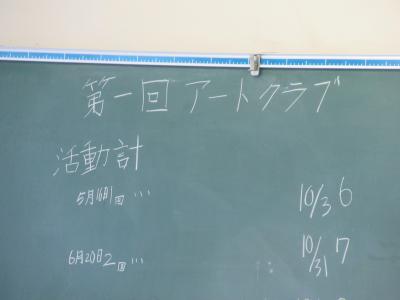 第一回 アートクラブ
活動計
5月16日1回 ... 10/3 6
6月20日2回 ... 10/31 7